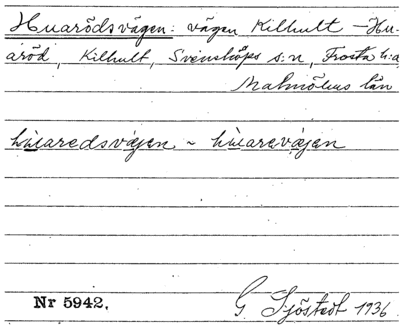 Huarödsvägen: vägen Killhult – Hu-
aröd, Killhult, Svensköps s:n, Frosta h:a,
Malmöhus län
hùaredsvä́jen ~ hùarevä́jen
Nr 5942.
G Sjöstedt 1936